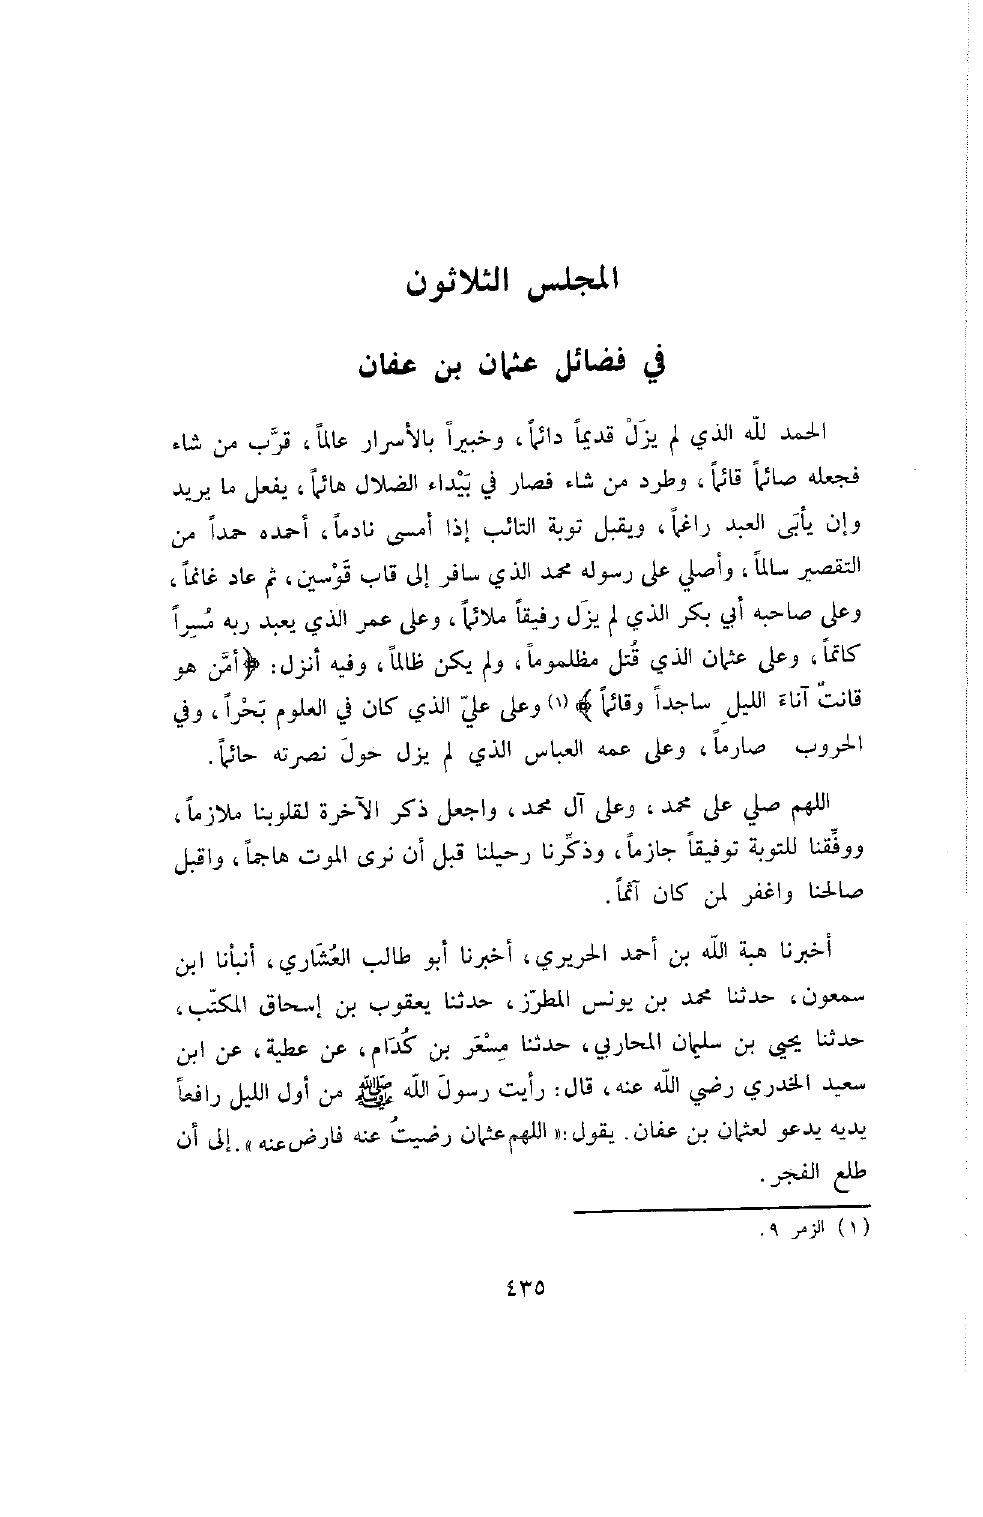 المجلس الثلاثون
في فضائل عثمان بن عفان
الحمد لله الذي لم يزَلْ قديماً دائماً، وخبيراً بالأسرار عالماً، قرَّب من شاء
فجعله صائماً قائماً، وطرد من شاء فصار في بَيْداء الضلال هائماً، يفعل ما يريد
وإن يأبَى العبد راغماً، ويقبل توبة التائب إذا أمسى نادماً، أحمده حمداً من
التقصير سالماً، وأصلي على رسوله محمد الذي سافر إلى قاب قَوْسين، ثم عاد غانماً،
وعلى صاحبه أبي بكر الذي لم يزَل رفيقاً ملائماً، وعلى عمر الذي يعبد ربه مُسِراً
كاتماً، وعلى عثمان الذي قُتل مظلموماً، ولم يكن ظالماً، وفيه أنزل: ﴿أمَّن هو
قانتٌ آناءَ الليلِ ساجداً وقائماً﴾ (١) وعلى عليّ الذي كان في العلوم بَحْراً، وفي
الحروب صارماً، وعلى عمه العباس الذي لم يزل حولَ نصرته حائماً.
اللهم صلي على محمد، وعلى آل محمد، واجعل ذكر الآخرة لقلوبنا ملازماً،
ووفِّقنا للتوبة توفيقاً جازماً، وذكِّرنا رحيلنا قبل أن نرى الموت هاجماً، واقبل
صالحنا واغفر لمن كان آثماً.
أخبرنا هبة الله بن أحمد الحريري، أخبرنا أبو طالب العُشَاري، أنبأنا ابن
سمعون، حدثنا محمد بن يونس المطرّز، حدثنا يعقوب بن إسحاق المكتّب،
حدثنا يحيى بن سليمان المحاربي، حدثنا مِسْعَر بن كُدَام، عن عطية، عن ابن
سعيد الخدري رضي الله عنه، قال: رأيت رسولَ الله ﷺ من أول الليل رافعاً
يديه يدعو لعثمان بن عفان. يقول: « اللهم عثمان رضيتُ عنه فارض عنه ». إلى أن
طلع الفجر.
(١) الزمر ٩.
٤٣٥